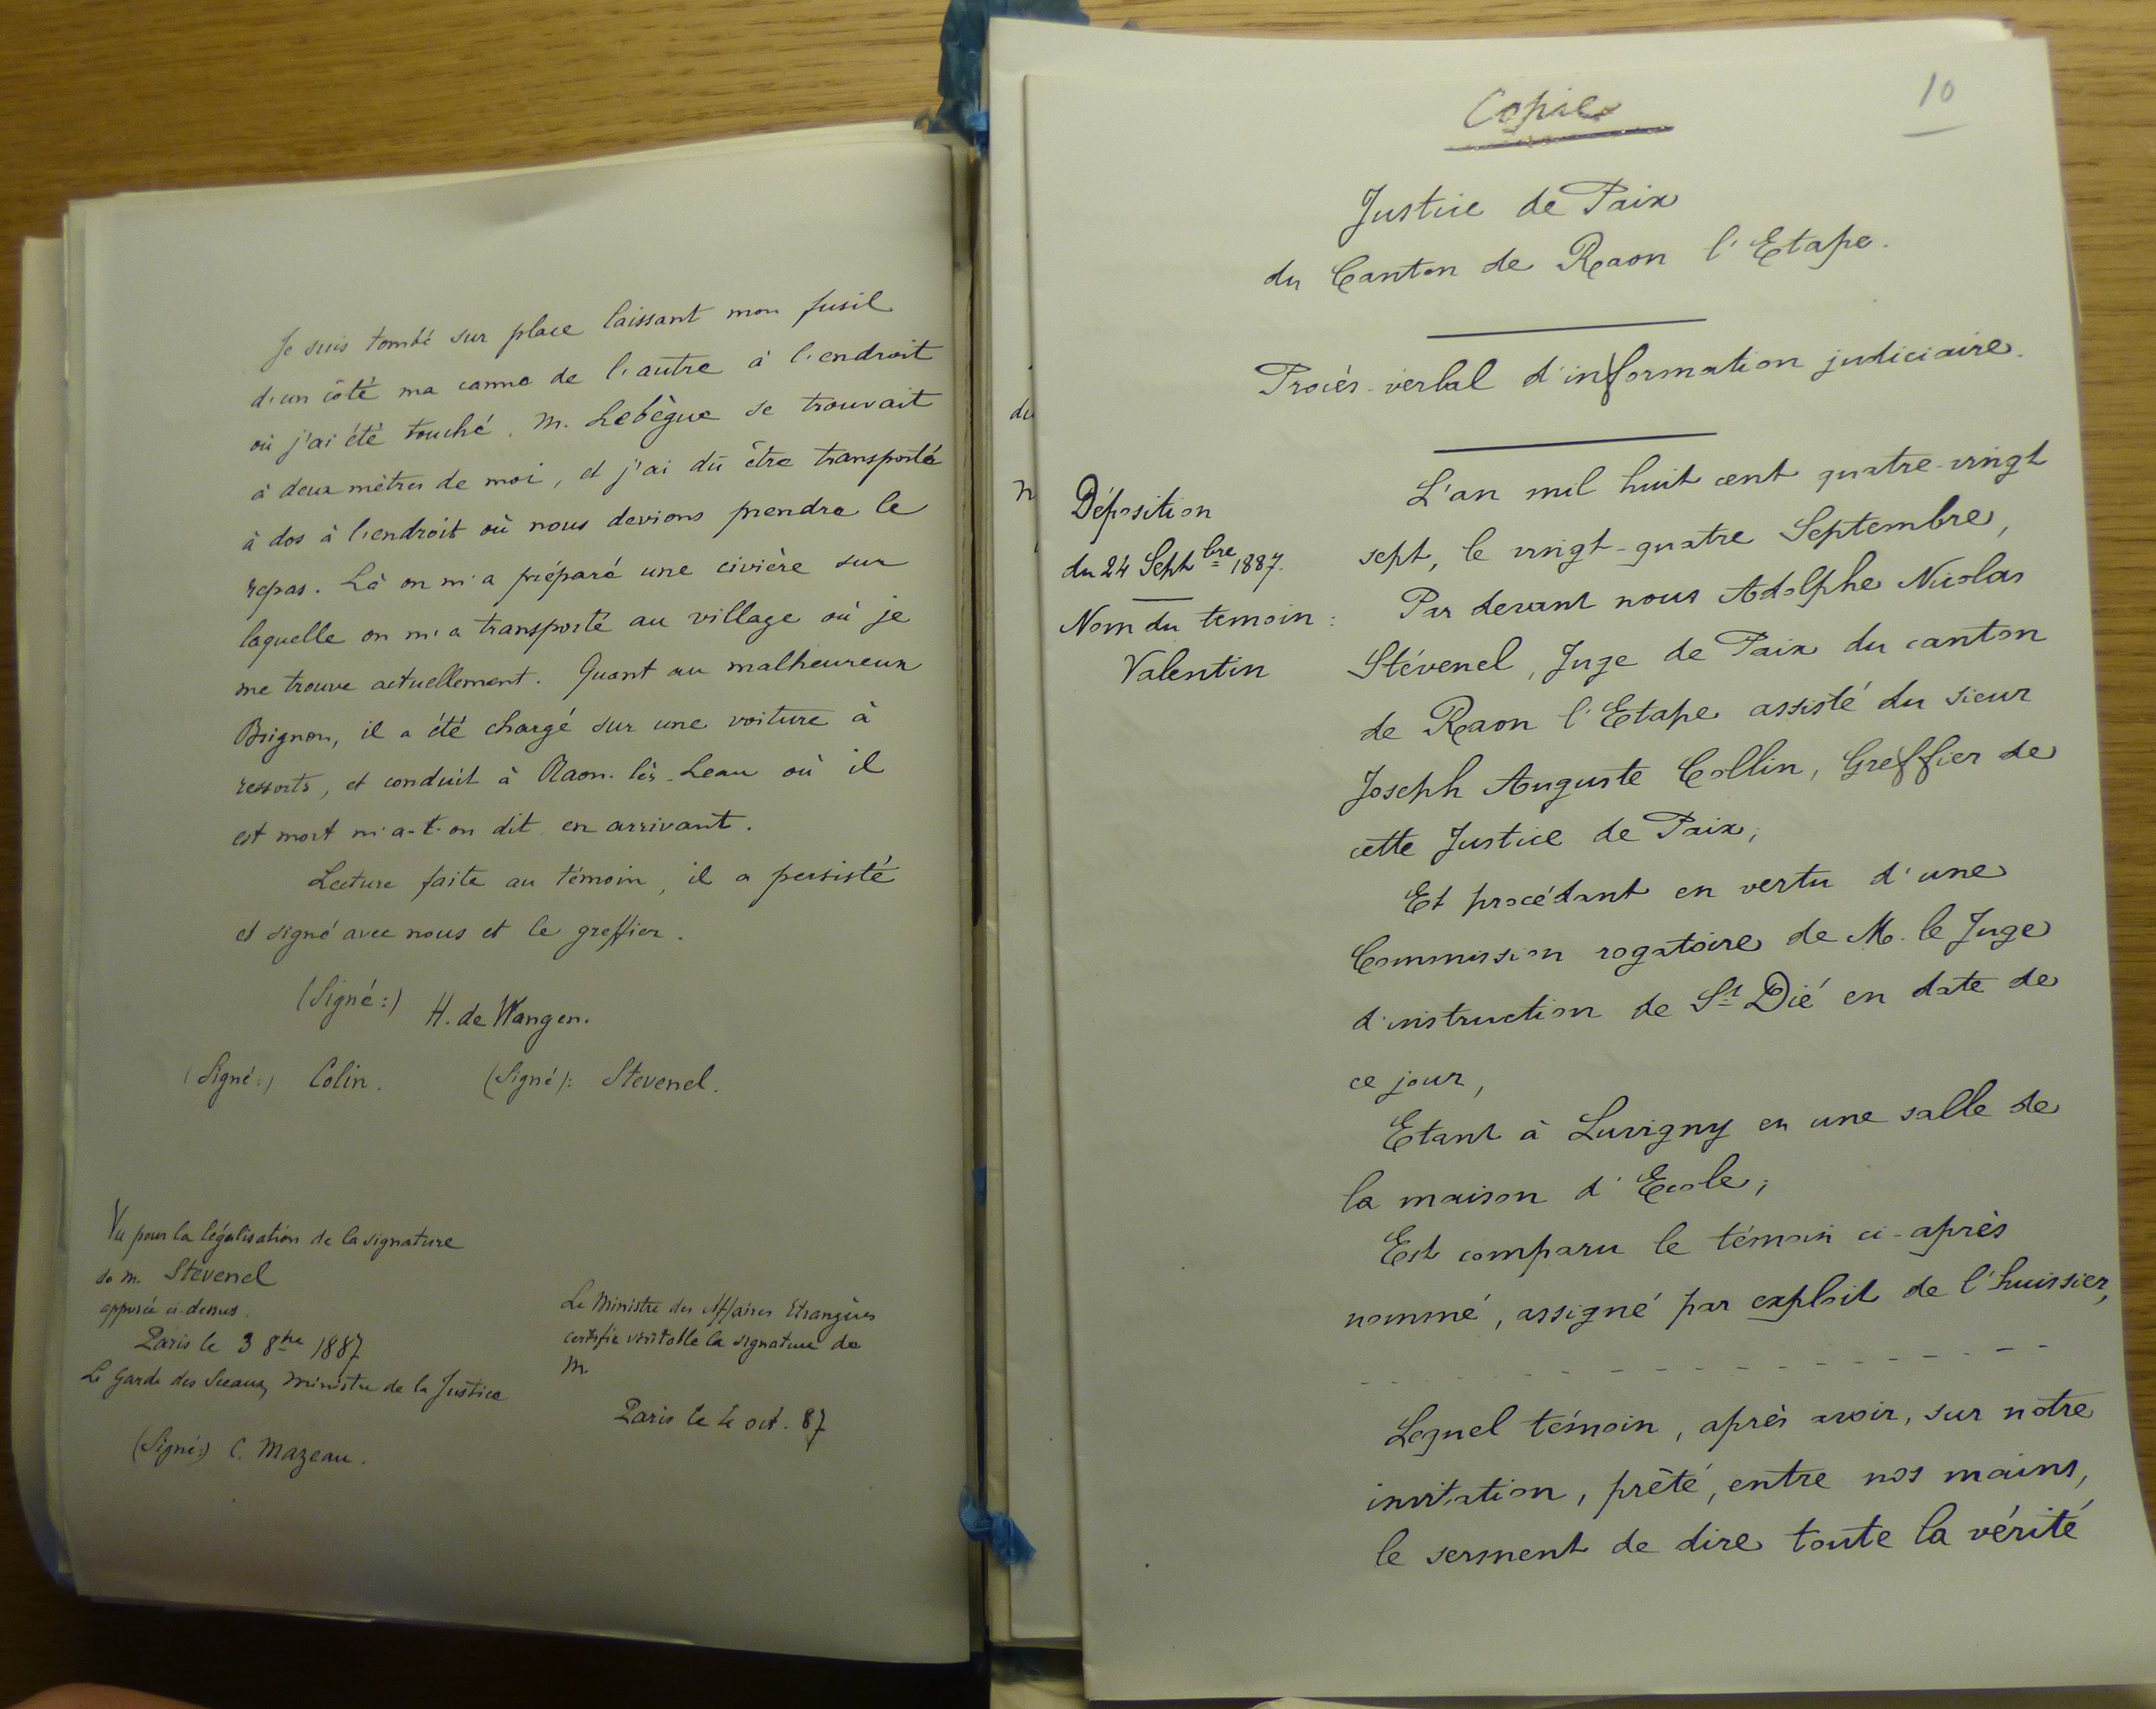 Je suis tombé sur place laissant mon fusil
d'un côté ma canne de l'autre à l'endroit
où j'ai été touché. M. Lebègue se trouvait
à deux mètres de moi, et j'ai dû être transporté
à dos à l'endroit où nous devions prendre le
repas. Là on m'a préparé une civière sur
laquelle on m'a transporté au village où je
me trouve actuellement. Quant au malheureux
Brignon, il a été chargé sur une voiture à
ressorts, et conduit à Raon-lès-Leau où il
est mort m'a-t-on dit en arrivant.
Lecture faite au témoin, il a persisté
et signé avec nous et le greffier.
(Signé:) H. de Wangen.
(Signé:) Colin. (Signé): Stevenel.
Vu pour la légalisation de la signature
de M. Stevenel
apposée ci-dessus.
Paris le 3 8bre 1887
Le Garde des Sceaux, Ministre de la Justice
(Signé:) C. Mazeau.
Le Ministre des Affaires Etrangères
certifie véritable la signature de
M.
Paris le 4 oct. 87
Copie
10
Justice de Paix
du Canton de Raon l'Etape.
Procès-verbal d'information judiciaire.
du
N
Déposition
du 24 Septbre 1887.
Nom du temoin :
Valentin
L'an mil huit cent quatre-vingt
sept, le vingt-quatre Septembre,
Par devant nous Adolphe Nicolas
Stévenel, Juge de Paix du canton
de Raon l'Etape assisté du sieur
Joseph Auguste Collin, Greffier de
cette Justice de Paix;
Et procédant en vertu d'une
Commission rogatoire de M. le Juge
d'instruction de St Dié en date de
ce jour,
Etant à Luvigny en une salle de
la maison d'Ecole;
Est comparu le témoin ci-après
nommé, assigné par exploit de l'huissier,
Lequel témoin, après avoir, sur notre
invitation, prêté, entre nos mains,
le serment de dire toute la vérité